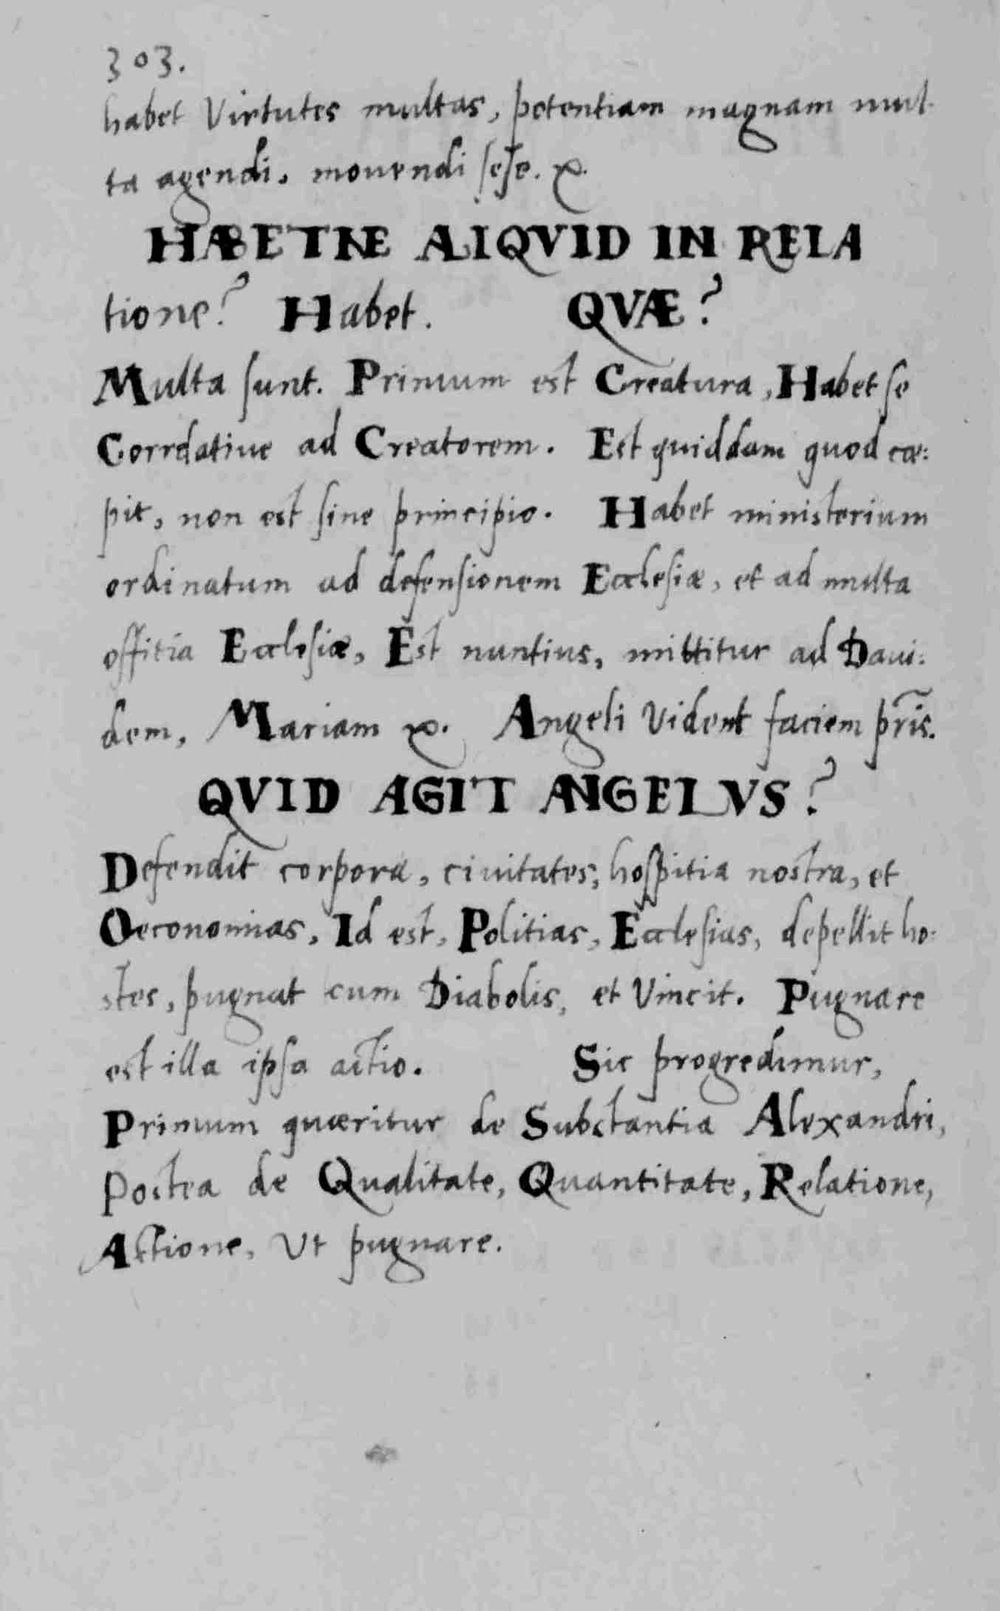 303.
habet Virtutes multas, potentiam magnam mul-
ta agendi. mouendi sese. &c.
HABETNE ALIQVID IN RELA
tione? Habet. QVÆ?
Multa sunt. Primum est Creatura, Habet se
Correlatiue ad Creatorem. Est quiddam quod cœ:
pit, non est sine principio. Habet ministerium
ordinatum ad defensionem Ecclesiæ, et ad multa
offitia Ecclesiæ, Est nuntius, mittitur ad Daui:
dem, Mariam &c. Angeli Vident faciem pr̃is.
QVID AGIT ANGELVS?
Defendit corpora, ciuitates, hospitia nostra, et
Oeconomias, Id est, Politias, Ecclesias, depellit ho:
stes, pugnat cum Diabolis, et Vincit. Pugnare
est illa ipsa actio. Sic progredimur,
Primum quæritur de Substantia Alexandri,
Postea de Qualitate, Quantitate, Relatione,
Actione, Ut pugnare.